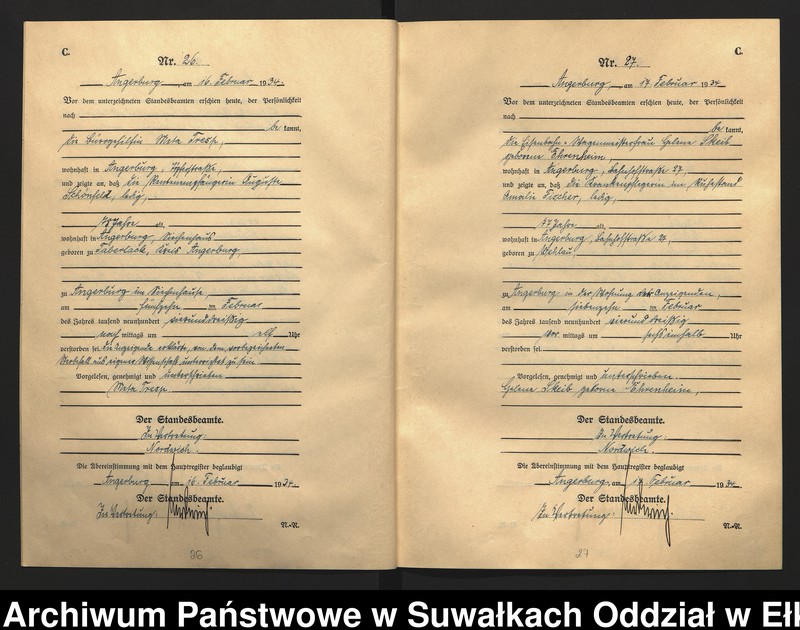 C.
Nr. 26.
Angerburg, am 16. Februar 1934.
Vor dem unterzeichneten Standesbeamten erschien heute, der Persönlichkeit
nach
be kannt,
die Bürogehilfin Meta Tresp,
wohnhaft in Angerburg,
und zeigte an, daß die Rentenempfängerin Auguste
Schönfeld, ledig,
78 Jahre alt,
wohnhaft in Angerburg, Siechenhaus
geboren zu Taberlack, Kreis Angerburg,
zu Angerburg im Siechenhause,
am fünfzehn ten Februar
des Jahres tausend neunhundert vierunddreißig
nach mittags um elf Uhr
verstorben sei. Die Anzeigende erklärte, von dem vorbezeichneten
Sterbefall aus eigener Wissenschaft unterrichtet zu sein
Vorgelesen, genehmigt und unterschrieben
Meta Tresp.
Der Standesbeamte.
In Vertretung:
Die Übereinstimmung mit dem Hauptregister beglaubigt
Angerburg, am 16. Februar 1934.
Der Standesbeamte.
In Vertretung:
N.-N.
26
C.
Nr. 27.
Angerburg, am 17. Februar 1934
Vor dem unterzeichneten Standesbeamten erschien heute, der Persönlichkeit
nach
be kannt,
die Eisenbahn-Wagenmeisterfrau Helene Skeib
geborene Ehrenheim,
wohnhaft in Angerburg, Bahnhofstraße 27,
und zeigte an, daß die Krankenpflegerin im Ruhestand
Amalie Fischer, ledig,
77 Jahre alt,
wohnhaft in Angerburg, Bahnhofstraße 27,
geboren zu Wehlau,
zu Angerburg in der Wohnung der Anzeigenden,
am siebenzehn ten Februar
des Jahres tausend neunhundert vierunddreißig
vor mittags um Uhr
verstorben sei.
Vorgelesen, genehmigt und unterschrieben.
Helene Skeib geborene Ehrenheim,
Der Standesbeamte.
In Vertretung:
Die Übereinstimmung mit dem Hauptregister beglaubigt
Angerburg, am 17. Februar 1934.
Der Standesbeamte.
In Vertretung:
N.-N.
27
Archiwum Państwowe w Suwałkach Oddział w Ełk